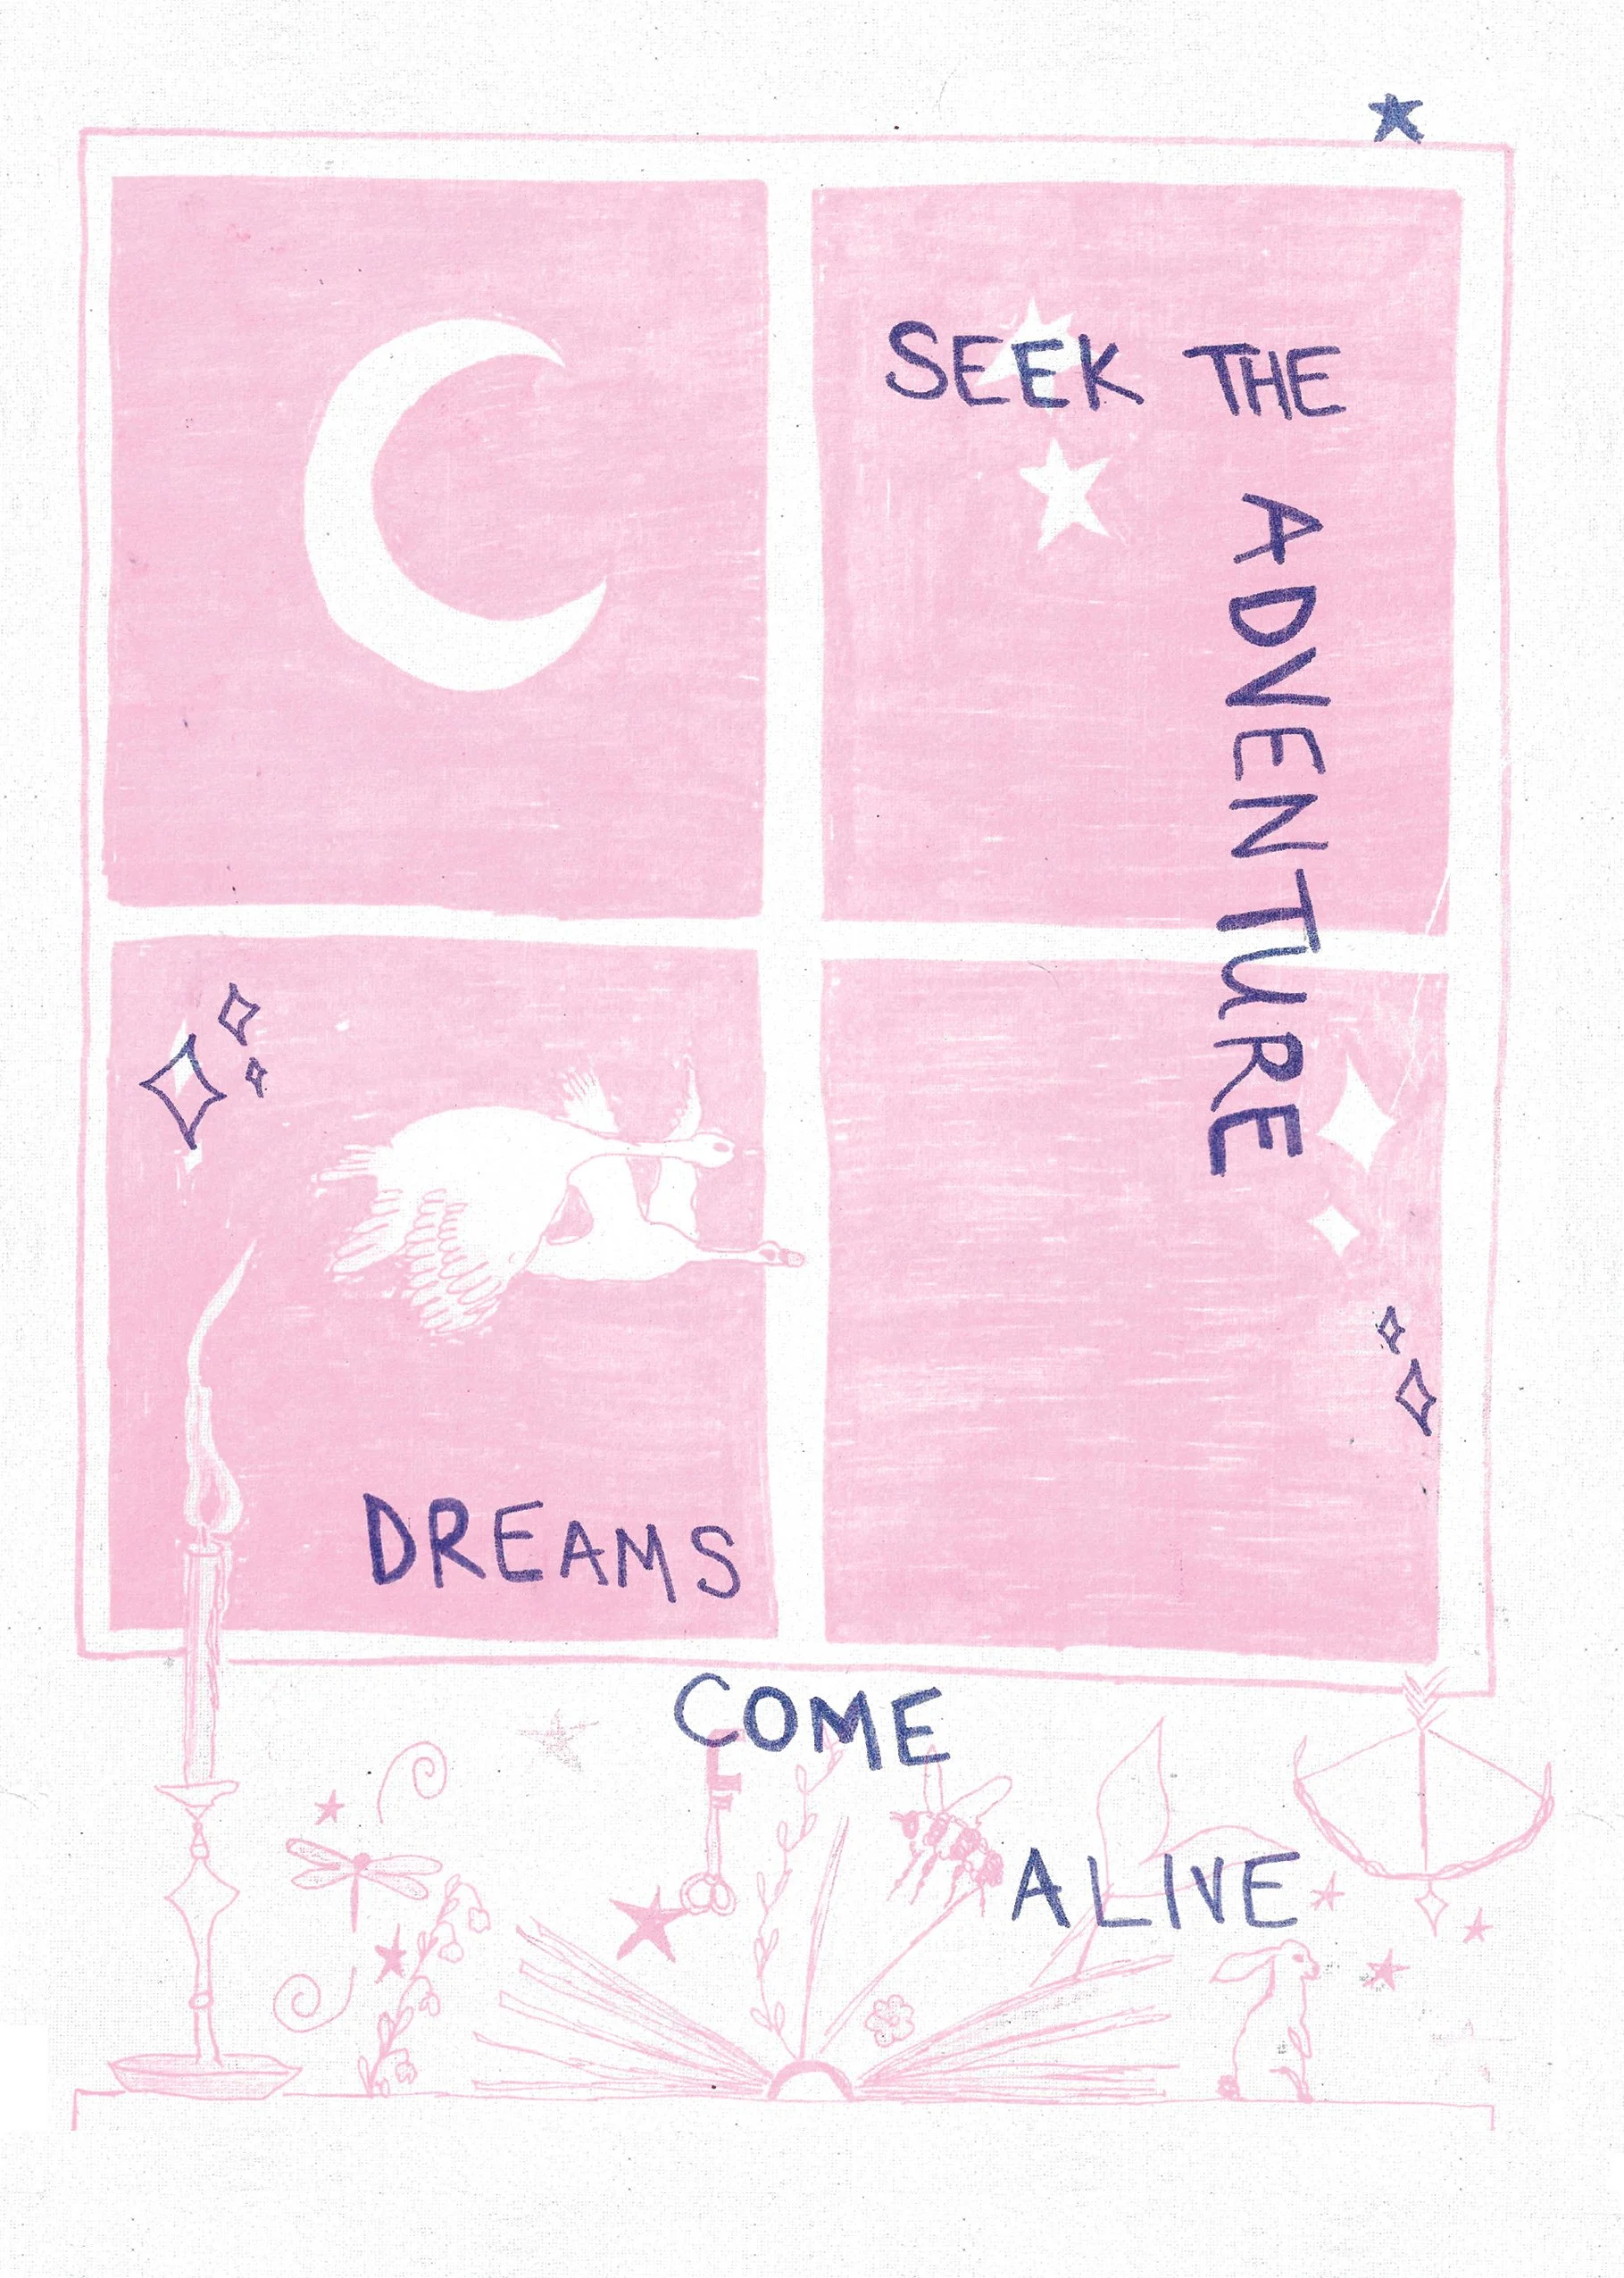 SEEK THE
ADVENTURE
DREAMS
COME
ALIVE